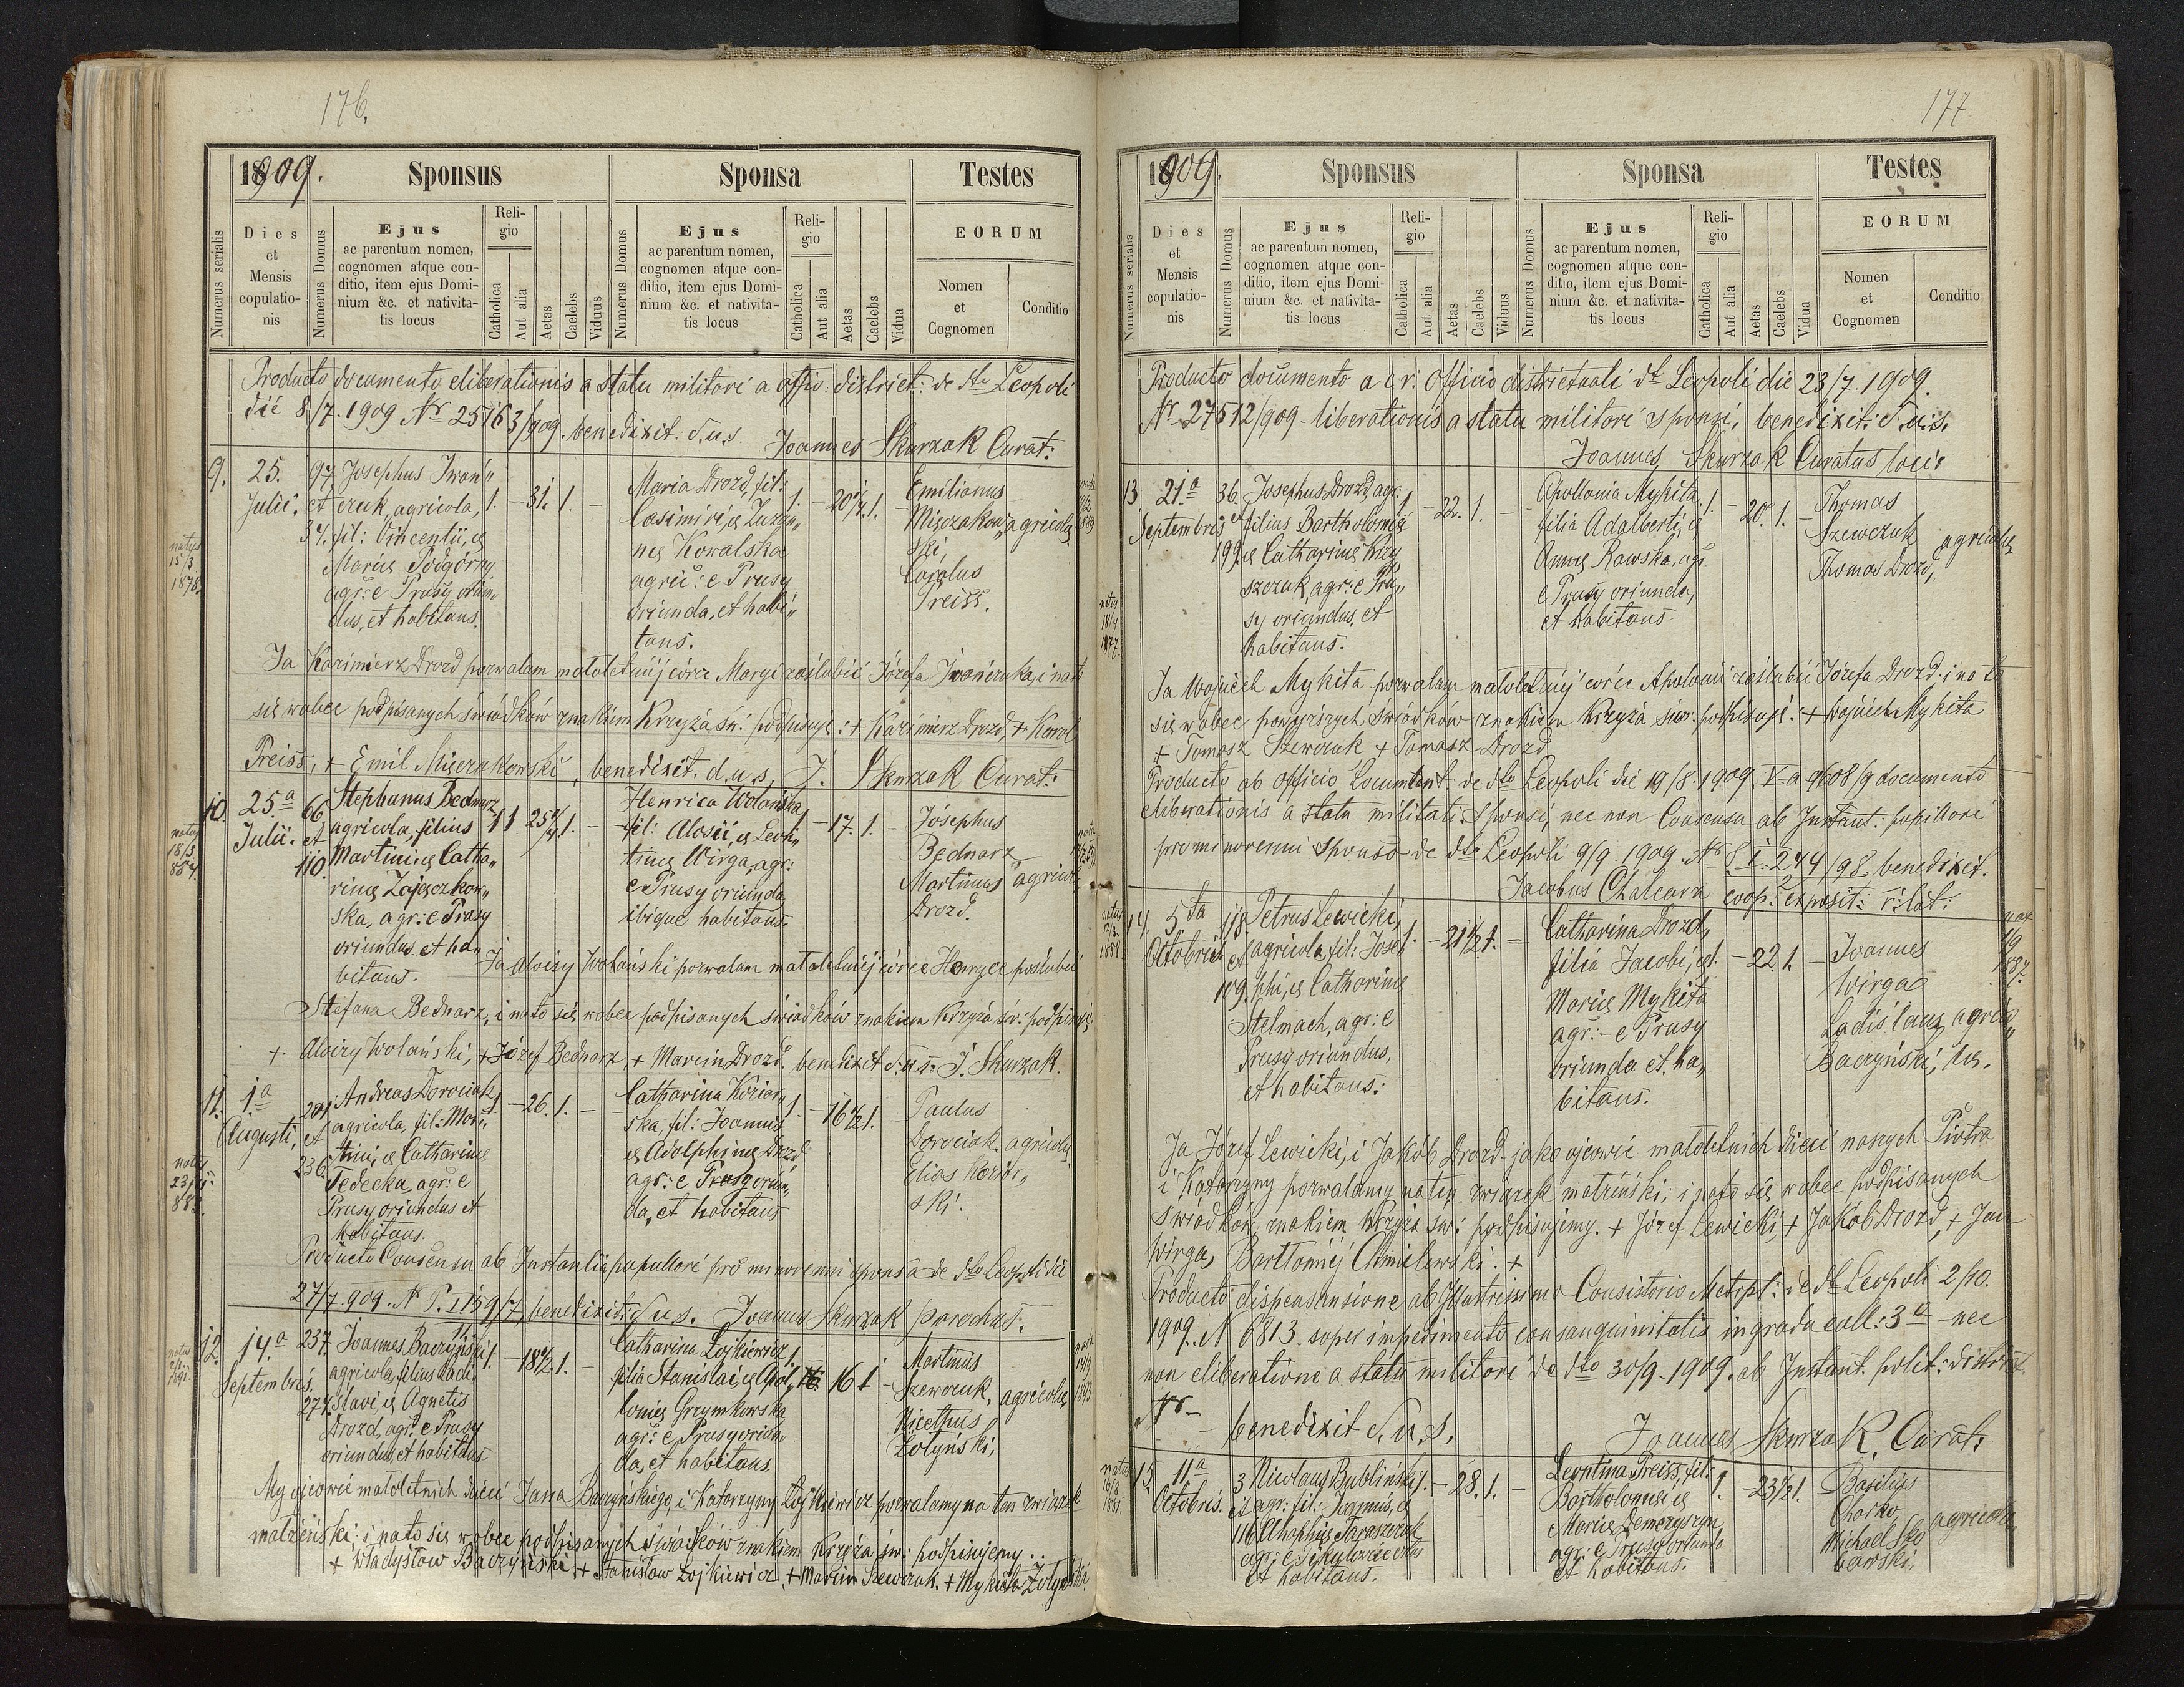 176.
1909.
Sponsus
Sponsa
Testes
Numerus serialis
Dies
et
Mensis
copulatio-
nis
Numerus Domus
Ejus
ac parentum nomen,
cognomen atque con-
ditio, item ejus Domi-
nium &c. et nativita-
tis locus
Reli-
gio
Catholica
Aut alia
Aetas
Caelebs
Viduus
Numerus Domus
Ejus
ac parentum nomen,
cognomen atque con-
ditio, item ejus Domi-
nium &c. et nativita-
tis locus
Reli-
gio
Catholica
Aut alia
Aetas
Caelebs
Vidua
EORUM
Nomen
et
Cognomen
Conditio
Producto documento eliberationis a statu militari a offic: district: de dto Leopoli
die 8/7. 1909 Nr 25763/909. benedixit: d.u.s Joannes Skurzak Curat:
9.
25.
Julii.
natus
15/3
1878.
97
et
34.
Josephus Iwań„
czuk, agricola,
fil: Vincentii, et
Mariæ Podgórny
agr: e Prusy oriun„
dus, et habitans.
1. – 31. 1. –
Maria Drozd, fil:
Casimiri, et Zuzan„
næ Kowalska
agric: e Prusy
oriunda, et habi„
tans.
1. – 20 1/2. 1. –
Emilianus
Misczakow„
ski,
Carolus
Preiss.
agricolæ
Ja Kazimierz Drozd pozwalam małoletniej córce Maryi zaślubić Józefa Iwańczuka, i na to
się wobec podpisanych świadków znakiem Krzyża św: podpisuję: + Kazimierz Drozd, + Karol
Preiss, + Emil Misczakowski, benedixit. d.u.s. J. Skurzak Curat:
10.
25a
Julii.
natus
18/3
884.
66
et
110.
Stephanus Bednarz
agricola, filius
Martini, et Catha„
rinæ Zajączkow„
ska, agr: e Prusy
oriundus et ha„
bitans.
1. 25 1/4 1. –
Henrica Wolańska
fil: Alosii, et Leon„
tinæ Wirga, agr:
e Prusy oriunda
ibique habitans.
1. – 17. 1. –
Jósephus
Bednarz
Martinus
Drozd.
agricolæ
Ja Aloizy Wolański pozwalam małoletniej córce Henryce poślubić
Stefana Bednarz, i na to się wobec podpisanych świadków znakiem Krzyża św: podpisuję
+ Aloizy Wolański, + Józef Bednarz, + Marcin Drozd. benedixit d.u.s. J. Skurzak.
11.
1a
Augusti,
natus
201
et
236
Andreas Dorociak
agricola, fil: Mar„
tini, et Catharinæ
Tedecka, agr: e
Prusy oriundus et
habitans.
1. – 26. 1. –
Catharina Kozior„
ska, fil: Joannis
et Adolphinæ Drozd
agr: e Prusy oriun„
da, et habitans
1. – 16 1/2 1.
Paulus
Dorociak.
Elias Kozior„
ski.
agricolæ
Producto Consensu ab Instantia pupullari pro minorenni sponsa de dto Leopoli die
27/7 909. Nr P. I 159/7, benedixit: d u s. Joannes Skurzak parochus.
12.
14.a
Septembris.
237.
274.
Joannes Baczyński
agricola, filius Ladi„
slavi, et Agnetis
Drozd, agr: e Prusy
oriundus, et habitans
1. – 18 1/2 1. –
Catharina Łojkiewicz
filia Stanislai, et Apol„
loniæ Grzymkowska
agr: e Prusy oriun„
da, et habitans.
1. 16 1 –
Martinus
Szewczuk,
Nicethus
Żołyński,
agricolæ
My ojcowie małoletnich dzieci Jana Baczyńskiego, i Katarzyny Łojkiewicz pozwalamy na ten związek
małżeński; i na to się wobec podpisanych świadków znakiem Krzyża św: podpisujemy.:
+ Władysław Baczyński + Stanisław Łojkiewicz, + Marcin Szewczuk. + Mykita Żołyński
177
1909.
Sponsus
Sponsa
Testes
Numerus serialis
Dies
et
Mensis
copulatio-
nis
Numerus Domus
Ejus
ac parentum nomen,
cognomen atque con-
ditio, item ejus Domi-
nium &c. et nativita-
tis locus
Reli-
gio
Catholica
Aut alia
Aetas
Caelebs
Viduus
Numerus Domus
Ejus
ac parentum nomen,
cognomen atque con-
ditio, item ejus Domi-
nium &c. et nativita-
tis locus
Reli-
gio
Catholica
Aut alia
Aetas
Caelebs
Vidua
EORUM
Nomen
et
Cognomen
Conditio
Producto documento a c. r. Officio districtuali dt Leopoli die 23/7. 1909.
Nr. 27512/909 liberationis a statu militari sponsi, benedixit: d.u.s.
Joannes Skurzak Curatus loci:
13
21.a
Septembris
36.
et
199.
Josephus Drozd, agr:
filius Bartholomæi
et Catharinæ Krzy
szczuk, agr: e Pru„
sy oriundus, et
habitans.
1. – 22. 1. –
Apollonia Mykita
filia Adalberti, et
Annæ Rawska, agr.
e Prusy oriunda,
et habitans
1. – 20. 1. –
Thomas
Szewczuk
Thomas Drozd,
agricolæ
Ja Wojciech Mykita pozwalam małoletniej córce Apolonii zaślubić Józefa Drozd. i na to
się wobec powyższych świadków znakiem Krzyża św: podpisuję. + Wojciech Mykita
+ Tomasz Szewczuk + Tomasz Drozd
Producto ab Officio Locumtent. de dto Leopoli die 19/8. 1909. V-a 9608/9 documento
eliberationis a statu militari Sponsi, nec non Consensu ab Instant: pupillari
pro minorenni Sponsa de dto Leopoli 9/9 1909. Nr 8 I. 244/98 benedixit.
Jacobus Chalcarz coop: exposit: r: lat:
14.
5ta
Octobris
118.
et
109.
Petrus Lewicki,
agricola, fil: Jose
phi, et Catharinæ
Stelmach, agr: e
Prusy oriundus,
et habitans:
1. – 21 1/2 1. –
Catharina Drozd,
filia Jacobi, et
Mariæ Mykita
agr: – e Prusy
oriunda et. ha„
bitans.
1. – 22 1. –
Joannes
Wirga
Ladislaus
Baczyński,
agrico„
læ.
Ja Józef Lewicki, i Jakób Drozd jako ojcowie małoletnich dzieci naszych Piotra
i Katarzyny pozwalamy na ten związek małżeński; i na to się wobec podpisanych
świadków, znakiem Krzyża św: podpisujemy. + Józef Lewicki, + Jakób Drozd, + Jan
Wirga, Bartłomiej Chmielewski. +
Producto dispensansione ab Illustrissimo Consistorio Metrpl: de dto Leopoli 2/10.
1909. N 6813. super impedimento consanguinitatis in gradu coll: 3o – nec
non eliberatione a statu militari de dto 30/9. 1909. ab Instant. polit: district.
Nr – benedixit d. u. s, Joannes Skurzak. Curat:
15.
11.a
Octobris.
3
et
116
Nicolaus Bubliński
agr: fil: Joannis, et
Ahaphiæ Taraszczuk
1. – 28. 1. –
Leontina Preiss, fil:
Bartholomæi et
Mariæ Demczyszyn,
agr: e Prusy oriunda
et habitans.
1. – 23 1/2 1. –
Basilius
Charko,
Michael Sło
bawski,
agricolæ